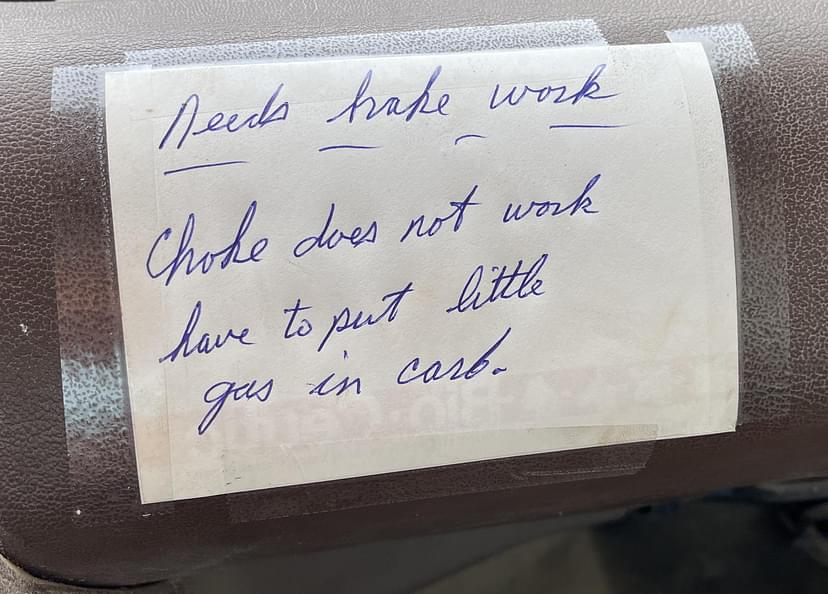 Needs brake work
Choke does not work
have to put little
gas in carb.